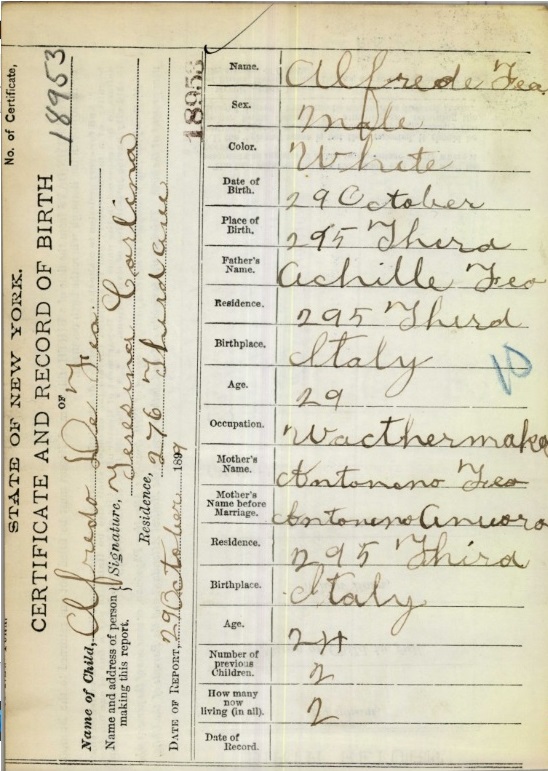 STATE OF NEW YORK.
No. of Certificate,
CERTIFICATE AND RECORD OF BIRTH
18953
OF
Name of Child, Alfredo De Feo
Name and address of person making this report, } Signature, Teresina Corlino
Residence, 276 Third ave
DATE OF REPORT, 29 October 1897
18953
Name. Alfrede Feo
Sex. Male
Color. White
Date of Birth. 29 October
Place of Birth, 295 Third
Father's Name. Achille Feo
Residence. 295 Third
Birthplace. Italy
Age. 29
Occupation. Wacthermake
Mother's Name. Antonono Feo
Mother's Name before Marriage. Antonino
Residence. 295 Third
Birthplace. Italy
Age. 24
Number of previous Children. 2
How many now living (in all). 2
Date of Record.